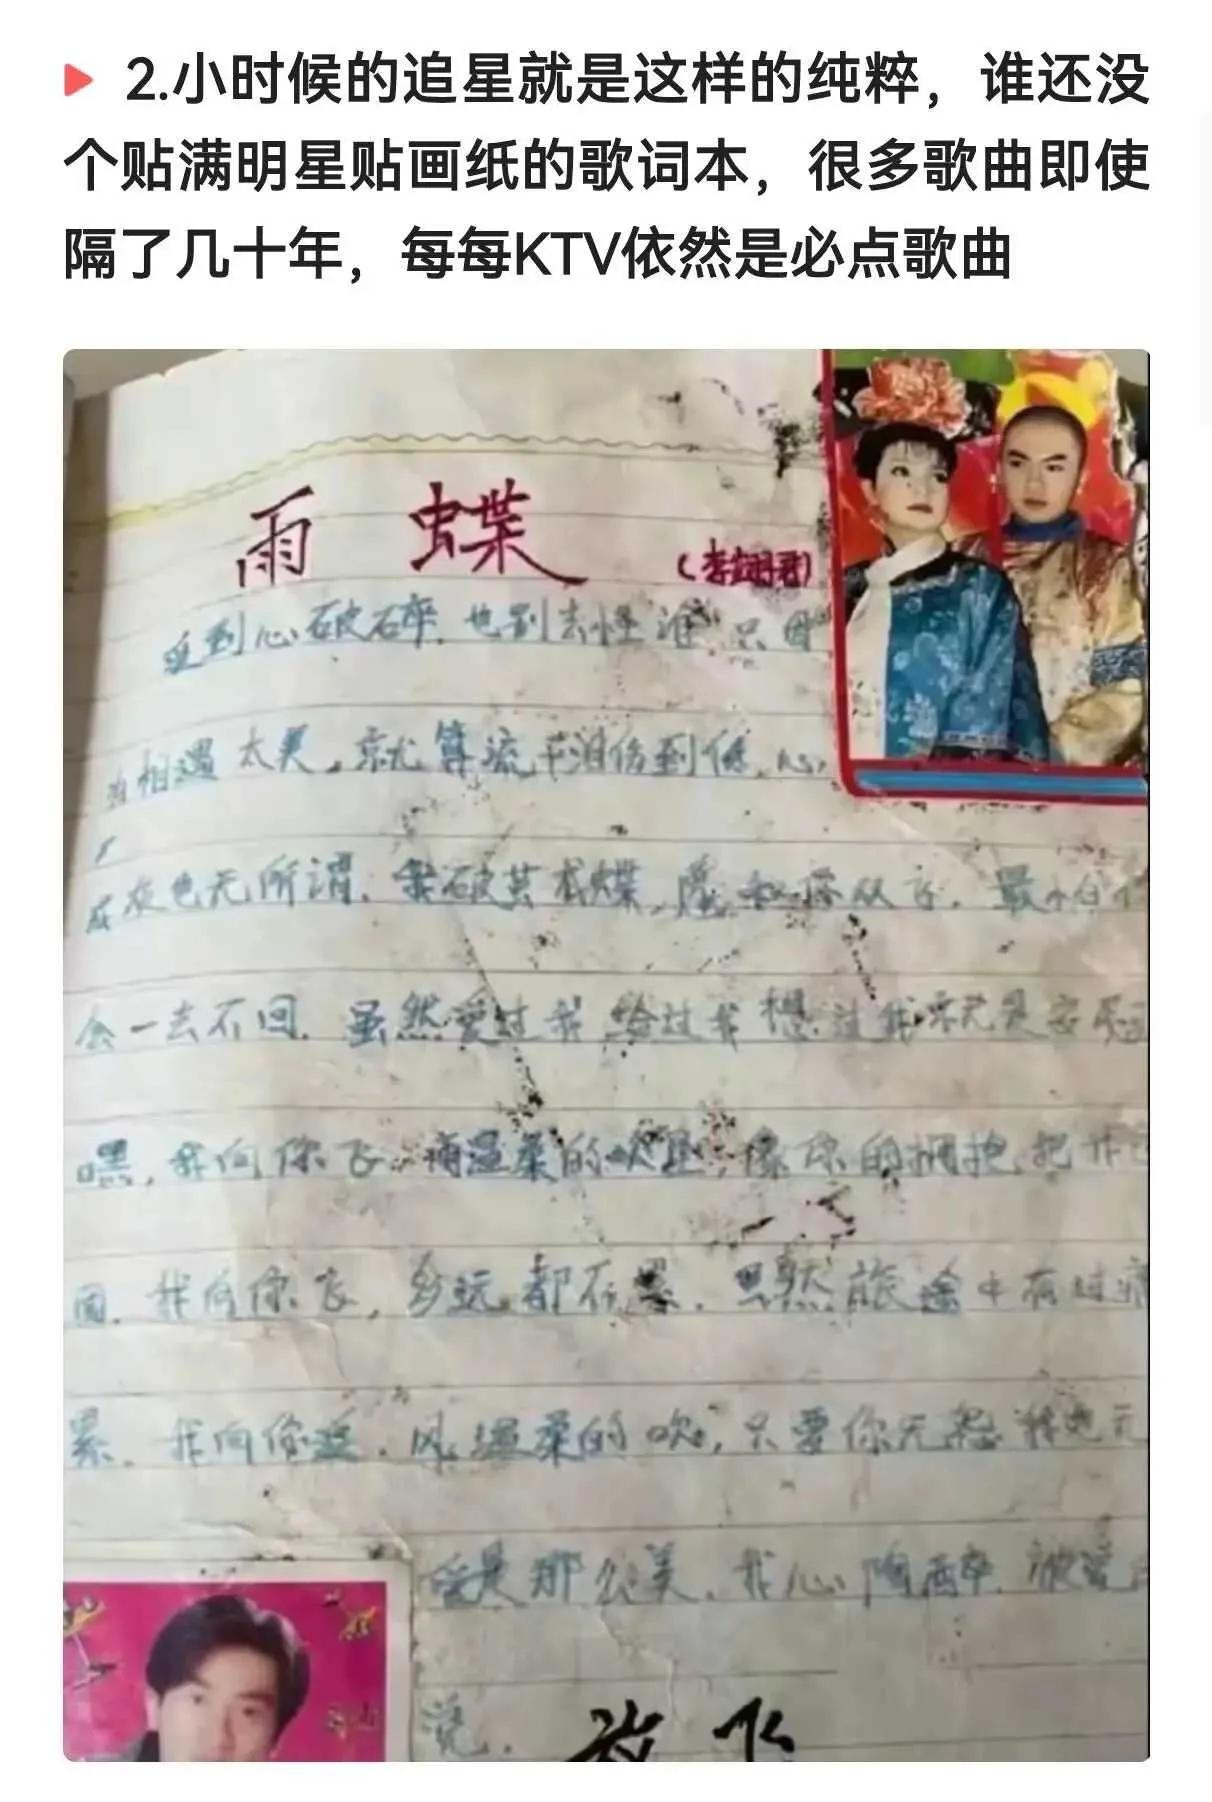 2.小时候的追星就是这样的纯粹，谁还没
个贴满明星贴画纸的歌词本，很多歌曲即使
隔了几十年，每每KTV依然是必点歌曲
雨 蝶
(李翊君)
到心破碎.也别去怪谁.只因
为相遇太美.就算流干泪伤到底.心
成灰也无所谓.我破茧成蝶.愿和你双飞.最怕你
会一去不回.虽然爱过我给过我想过我就是安慰
嘿,我向你飞.雨温柔的坠,像你的拥抱把我包
围.我向你飞,多远都不累.虽然旅途中有过痛
累.我向你追.风温柔的吹,只要你无怨我也无
爱是那么美.我心陶醉.被爱的
觉.
放飞